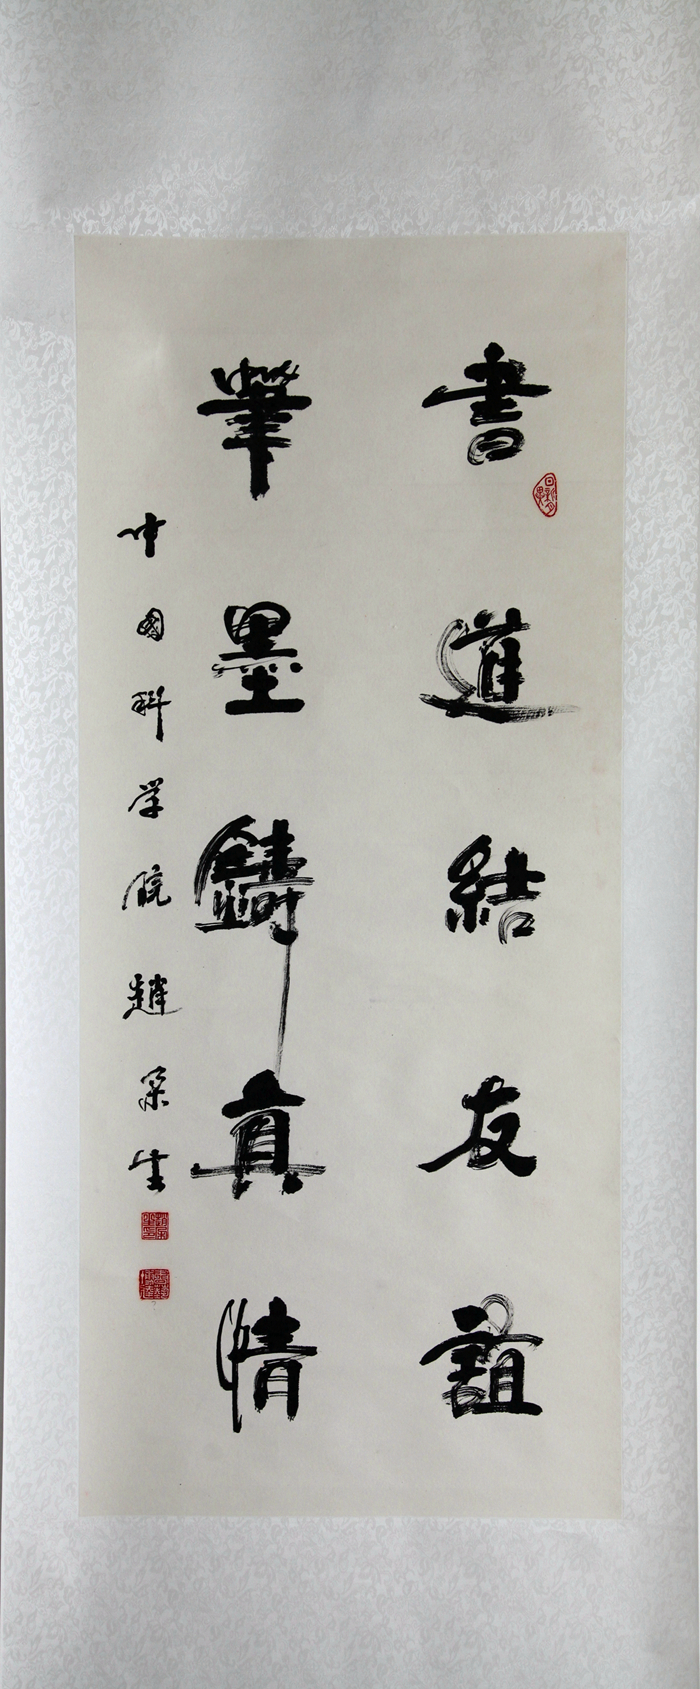 書道結友誼
筆墨鑄真情
中國科学院趙榮生